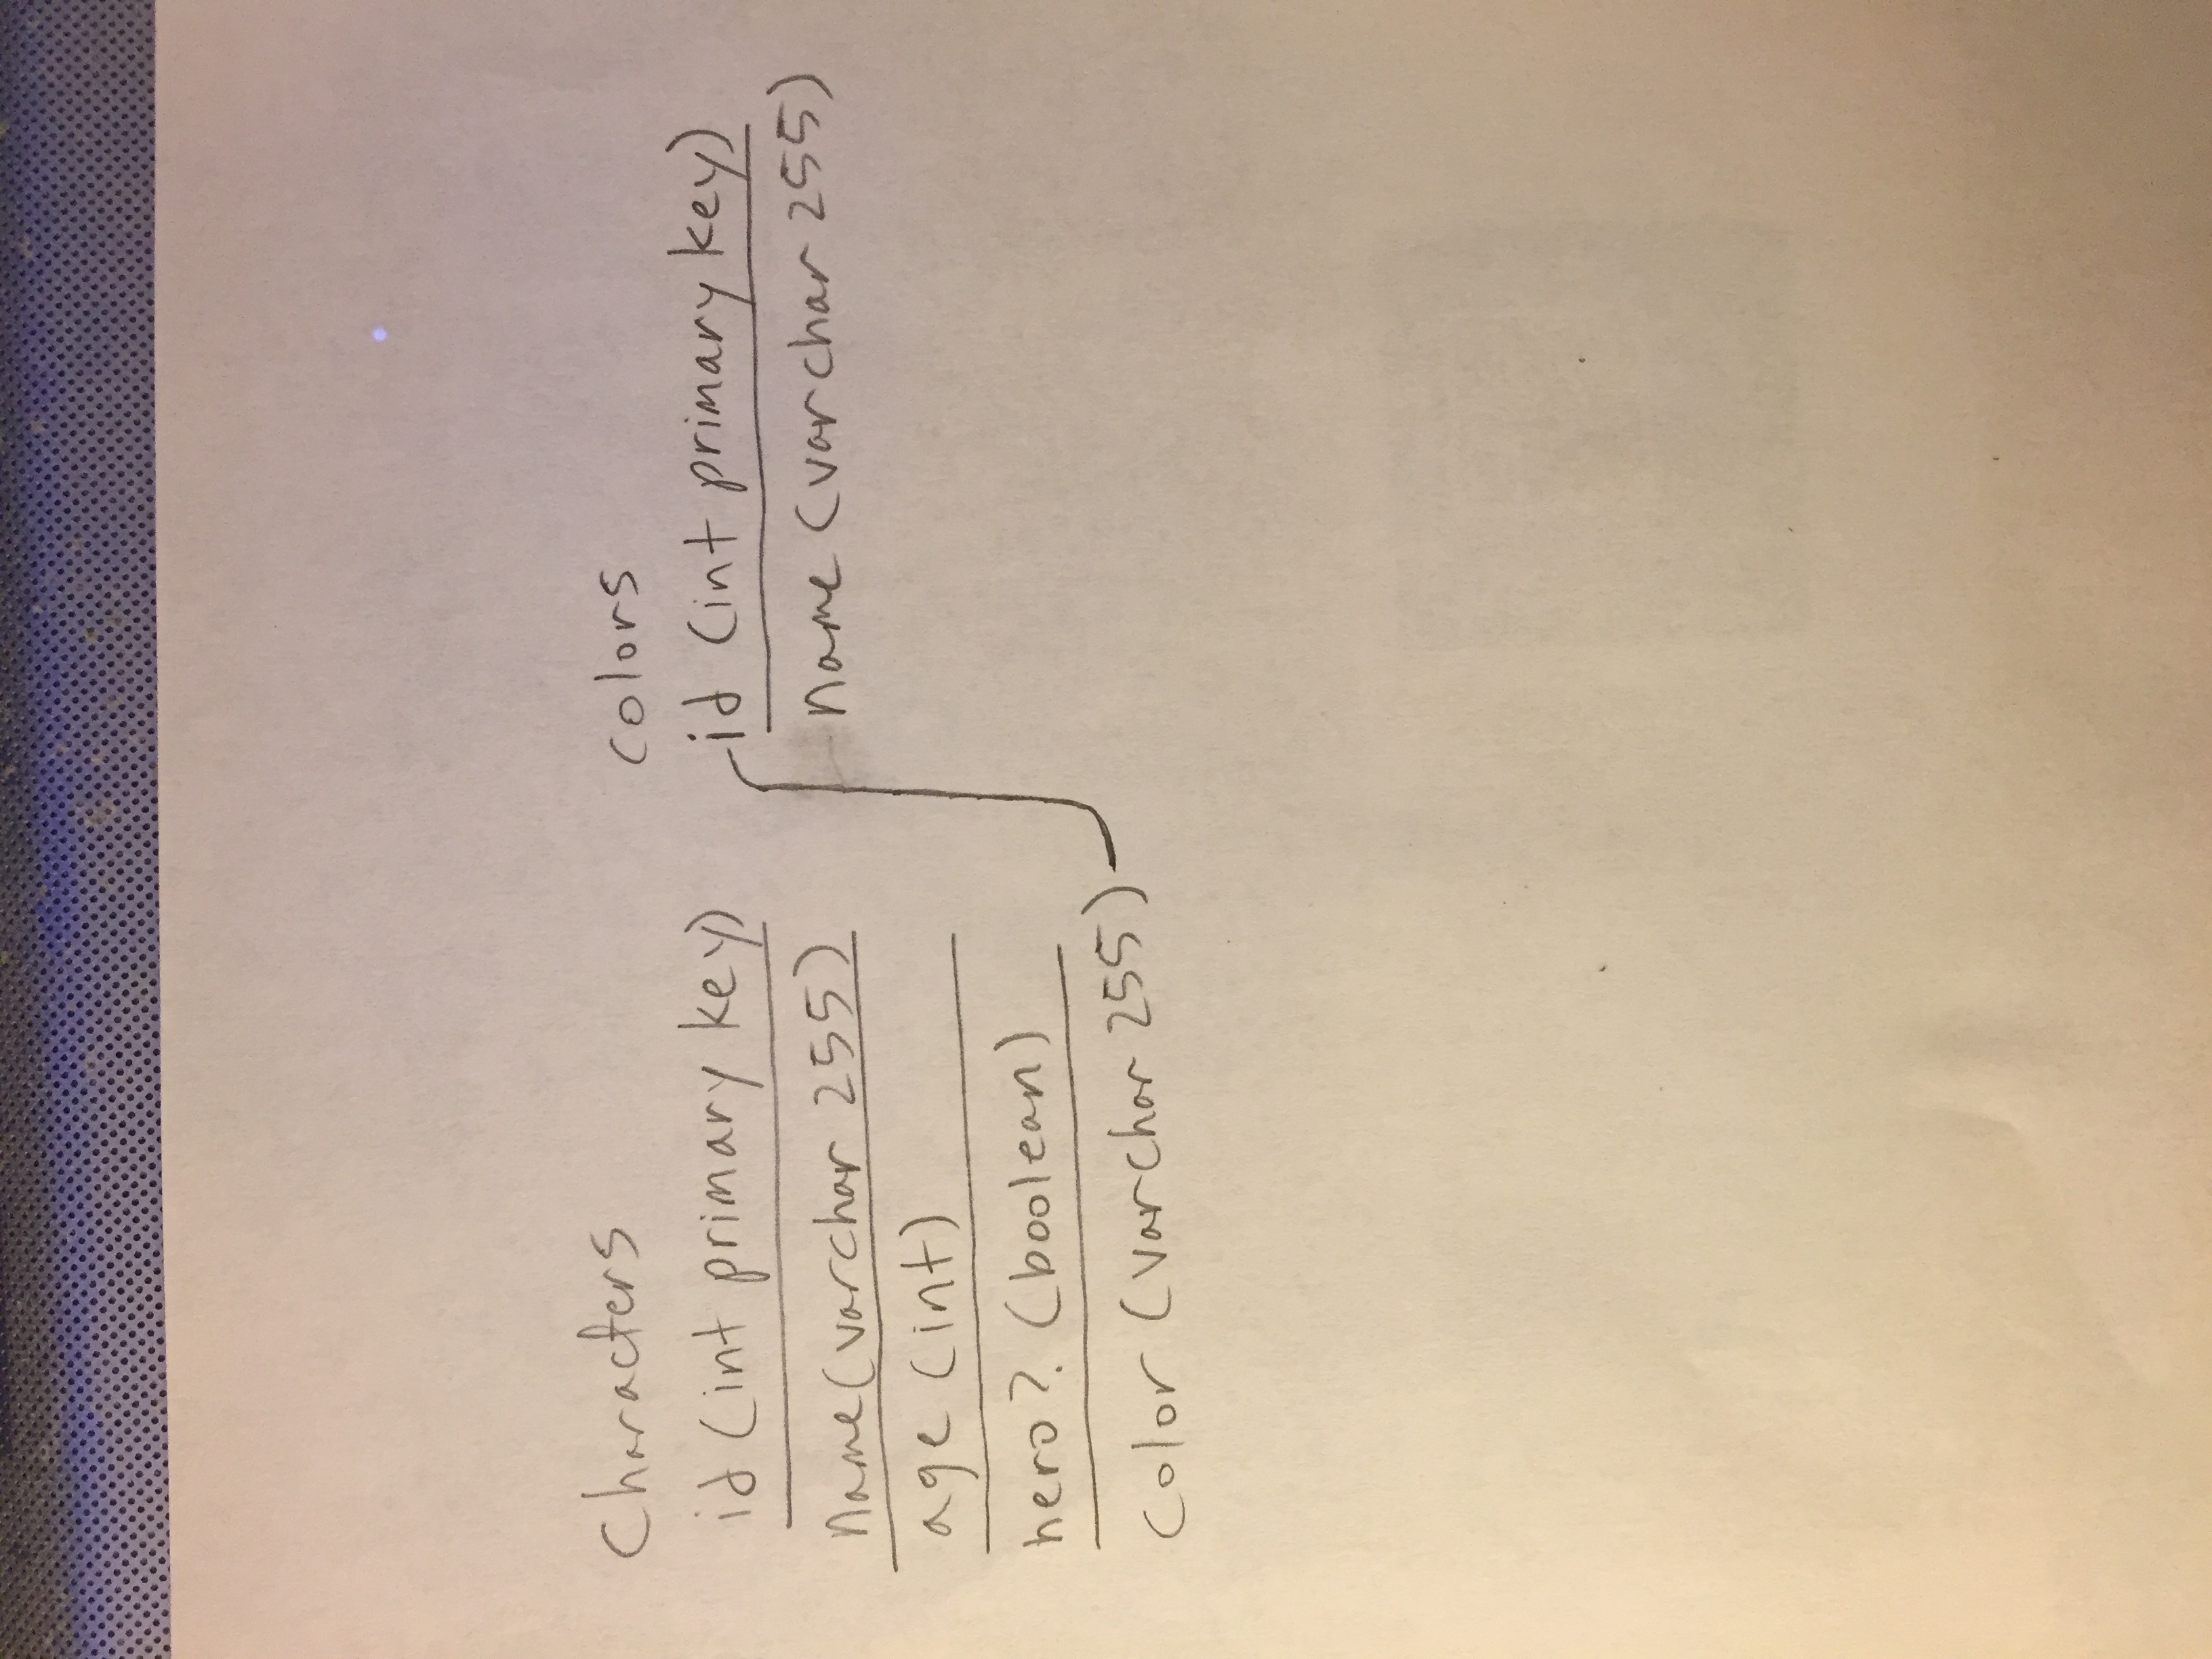 Characters
id (int primary key)
name (varchar 255)
age (int)
hero? (boolean)
color (varchar 255)
colors
id (int primary key)
name (varchar 255)